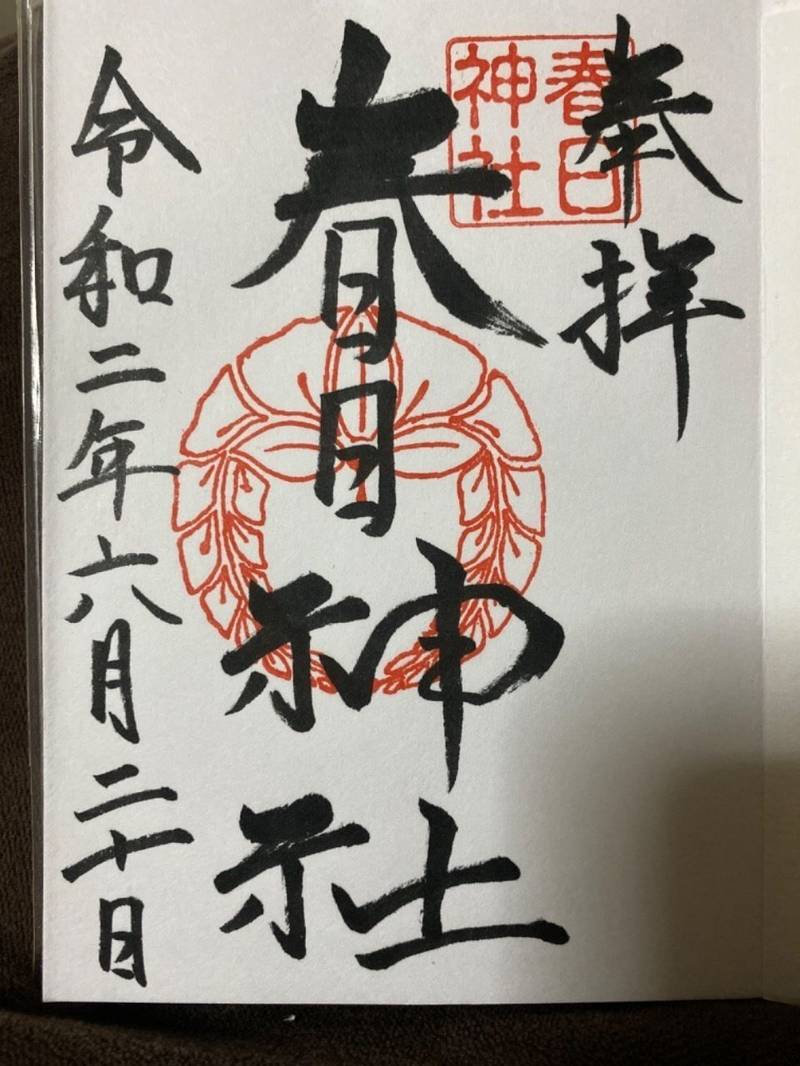 奉拝
春日神社
春日神社
令和二年六月二十日